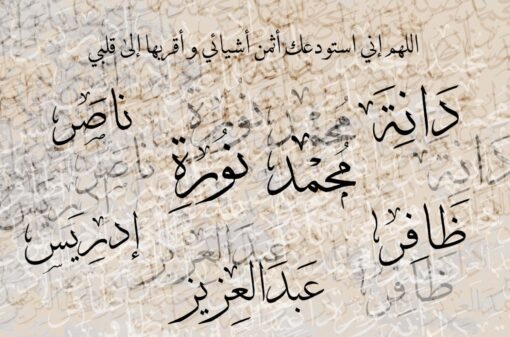 اللهم إني استودعك أثمن أشيائي و أقربها إلى قلبي
دَانِة ناصَر
مُحمد نُورة
ظَافر إدريس
عبدَالعِزيز